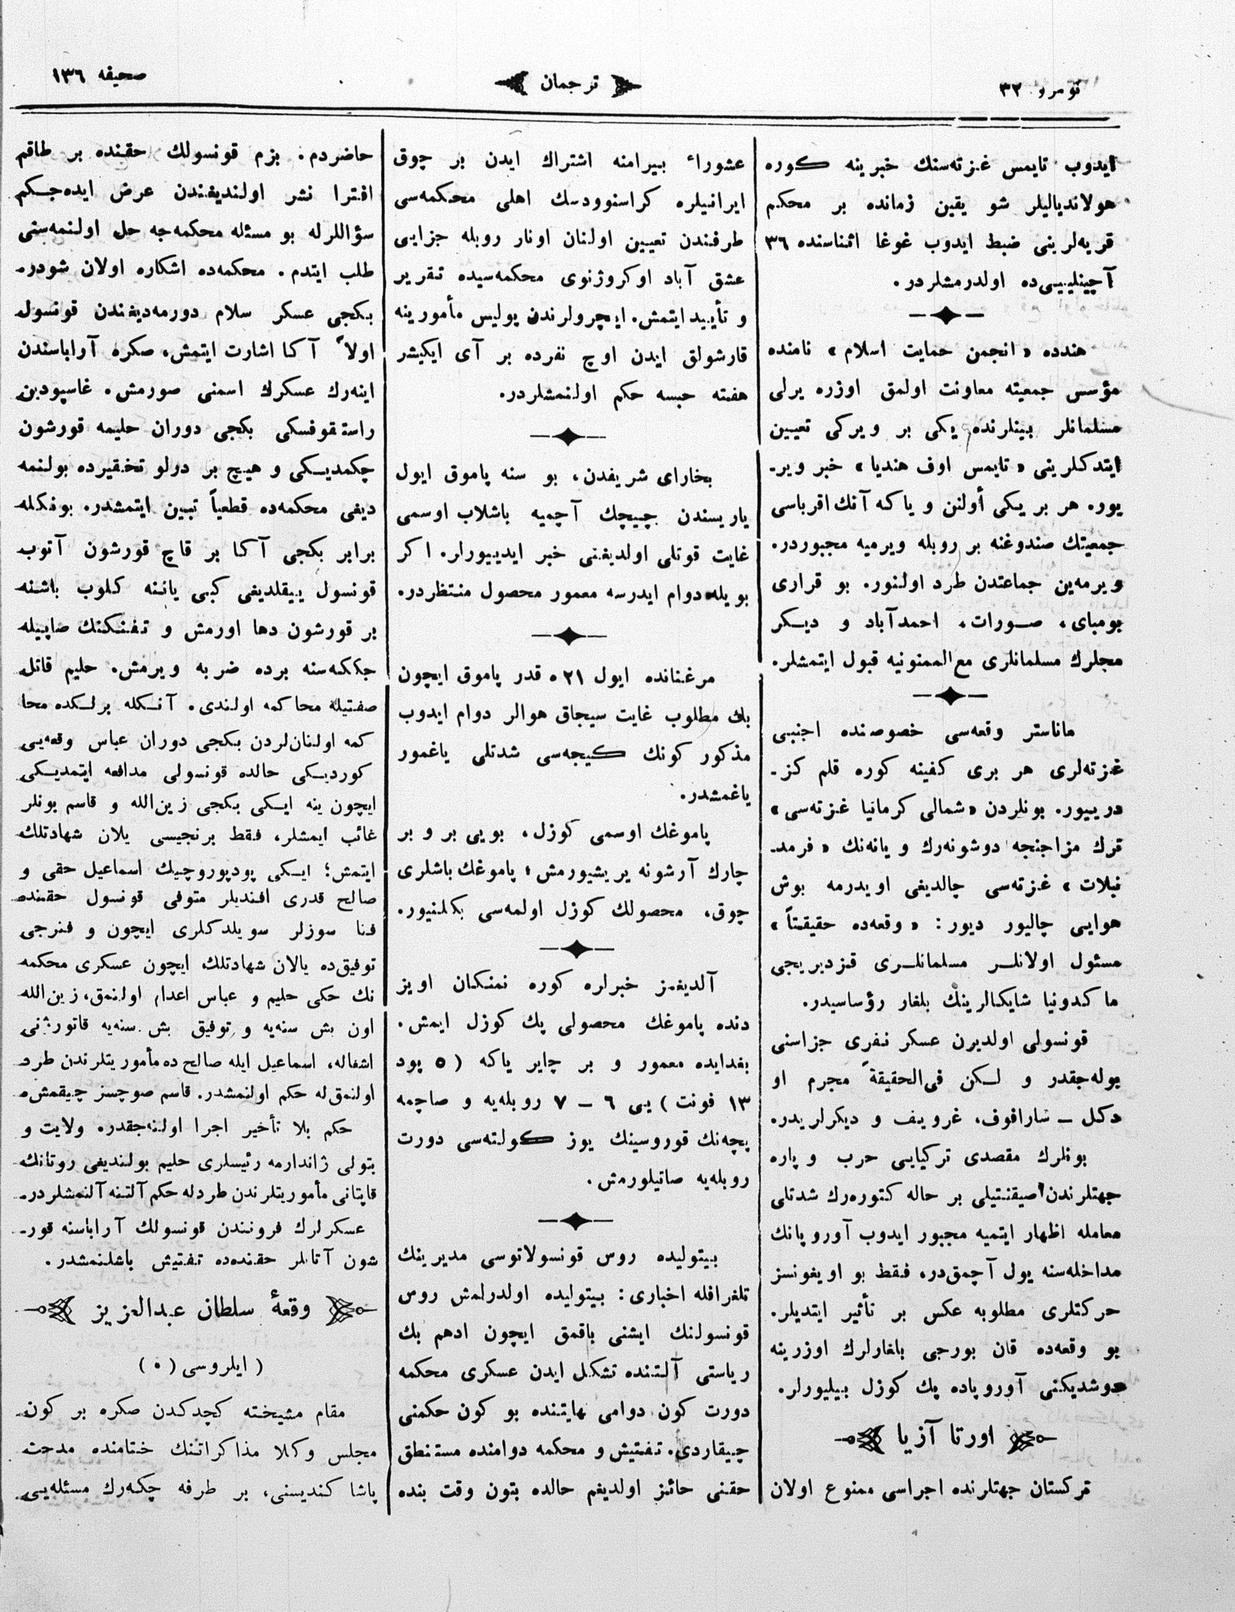 نومرو ٣٢
ترجمان
صحيفه ١٣٦
ايدوب تايمس غزته‌سنك خبرينه كوره
هولانديا‌ليلر شو يقين زمانده بر محكم
قريه‌لرينى ضبط ايدوب غوغا اثناسنده ٣٦
آچينلييى‌ده اولدرمشلردر.
هندده «انجمن حمايت اسلام» نامنده
مؤسس جمعيته معاونت اولمق اوزره يرلى
مسلمانلر بينلرنده يكى بر ويركى تعيين
ايتدكلرينى «تايمس اوف هنديا» خبر وير-
يور. هر بر يكى أولنن و ياكه آنك اقرباسى
جمعيتك صندوغنه بر روبله ويرميه مجبوردر.
ويرمه‌ين جماعتدن طرد اولنور. بو قرارى
بومباى، صورات، احمدآباد و ديكر
محللرك مسلمانلرى مع‌الممنونيه قبول ايتمشلر.
ماناستر وقعه‌سى خصوصنده اجنبى
غزته‌لرى هر برى كفينه كوره قلم كز-
درييور. بونلردن «شمالى كرمانيا غزته‌سى»
ترك مزاجنجه دوشونه‌رك و يانه‌نك «فرمد-
نبلات» غزته‌سى چالديغى اويدرمه بوش
هوايى چاليور ديور: «وقعه‌ده حقيقتاً
مسئول اولانلر مسلمانلرى قزديريجى
ماكدونيا شايكالرينك بلغار رؤساسيدر.
قونسولى اولديرن عسكر نفرى جزاسنى
بوله‌جقدر و لكن فى‌الحقيقة مجرم او
دكل ـ شارافوف، غروييف و ديكرلريدر.
بونلرك مقصدى تركيايى حرب و پاره
جهتلرندن صيقنتيلى بر حاله كتوره‌رك شدتلى
معامله اظهار ايتميه مجبور ايدوب آوروپانك
مداخله‌سنه يول آچمق‌در، فقط بو اويغونسز
حركتلرى مطلوبه عكس بر تأثير ايتديلر.
بو وقعه‌ده قان بورجى بلغارلرك اوزرينه
دوشديكنى آوروپاده پك كوزل بيليورلر.
اورتا آزيا
تركستان جهتلرنده اجراسى ممنوع اولان
عشوراء بيرامنه اشتراك ايدن بر چوق
ايرانيلره كراسنوودسك اهلى محكمه‌سى
طرفندن تعيين اولنان اونار روبله جزايى
عشق آباد اوكروژنوى محكمه‌سيده تقرير
و تأييد ايتمش. ايچرولرندن پوليس مأمورينه
قارشولق ايدن اوچ نفرده بر آى ايكيشر
هفته حبسه حكم اولنمشلردر.
بخاراى شريفدن، بو سنه پاموق ايول
ياريسندن چيچك آچميه باشلاب اوسمى
غايت قوتلى اولديغنى خبر ايدييورلر. اكر
بويله دوام ايدرسه معمور محصول منتظردر.
مرغنانده ايول ٢١ه قدر پاموق ايچون
پك مطلوب غايت سيجاق هوالر دوام ايدوب
مذكور كونك كيجه‌سى شدتلى ياغمور
ياغمشدر.
پاموغك اوسمى كوزل، بويى بر و بر
چارك آرشونه يريشيورمش؛ پاموغك باشلرى
چوق، محصولك كوزل اولمه‌سى بكلنيور.
آلديغمز خبرلره كوره نمنكان اويز
دنده پاموغك محصولى پك كوزل ايمش.
بغدايده معمور و بر چاير ياكه (٥ پود
١٣ فونت) يى ٦ ـ ٧ روبله‌يه و صاچمه
پچه‌نك قوروسينك يوز كولته‌سى دورت
روبله‌يه صاتيلورمش.
بيتوليده روس قونسولاتوسى مديرينك
تلغرافله اخبارى: بيتوليده اولدرلمش روس
قونسولنك ايشنى باقمق ايچون ادهم بك
رياستى آلتنده تشكل ايدن عسكرى محكمه
دورت كون دوامى نهايتنده بو كون حكمنى
چيقاردى. تفتيش و محكمه دوامنده مستنطق
حقنى حائز اولديغم حالده بتون وقت بنده
حاضردم. بزم قونسولك حقنده بر طاقم
افترا نشر اولنديغندن عرض ايده‌جكم
سؤاللرله بو مسئله محكمه‌جه حل اولنمه‌سنى
طلب ايتدم. محكمه‌ده اشكاره اولان شودر.
بكجى عسكر سلام دورمه‌ديغندن قونسول
اولاً آكا اشارت ايتمش، صكره آراباسندن
اينه‌رك عسكرك اسمنى صورمش. غاسپودين
راستقوفسكى بكجى دوران حليمه قورشون
چكمديكى و هيچ بر درلو تحقيرده بولنمه
ديغى محكمه‌ده قطعياً تبين ايتمشدر. بونكله
برابر بكجى آكا بر قاچ قورشون آتوب
قونسول ييقلديغى كبى يانه كلوب باشنه
بر قورشون دها اورمش و تفنكنك صاپيله
چككه‌سنه برده ضربه ويرمش. حليم قاتل
صفتيله محاكمه اولندى. آنكله برلكده محا
كمه اولنان‌لردن بكجى دوران عباس وقعه‌يى
كورديكى حالده قونسولى مدافعه ايتمديكى
ايچون ينه ايكى بكجى زين‌الله و قاسم بونلر
غائب ايمشلر، فقط برنجيسى يلان شهادتلك
ايتمش؛ ايكى پودپوروچيك اسماعيل حقى و
صالح قدرى افنديلر متوفى قونسول حقنده
فنا سوزلر سويلدكلرى ايچون و فنرجى
توفيق‌ده يالان شهادتلك ايچون عسكرى محكمه
نك حكى حليم و عباس اعدام اولنمق، زين‌الله
اون بش سنه‌يه و توفيق بش سنه‌يه قاتورژنى
اشغاله، اسماعيل ايله صالح ده مأموريتلرندن طرد
اولنمق‌له حكم اولنمشدر. قاسم صوچسز چيقمش.
حكم بلا تأخير اجرا اولنه‌جقدر. ولايت و
بتولى ژاندارمه رئيسلرى حليم بولنديغى روتانك
قاپتانى مأموريتلرندن طردله حكم آلتنه آلنمشلردر.
عسكرلرك فروتندن قونسولك آراباسنه قور-
شون آتانلر حقنده‌ده تفتيش باشلنمشدر.
وقعۀ سلطان عبدالعزيز
(ايلروسى) (٥)
مقام مشيخته كچدكدن صكره بر كون
مجلس وكلا مذاكراتنك ختامنده مدحت
پاشا كنديسنى، بر طرفه چكه‌رك مسئله‌يى